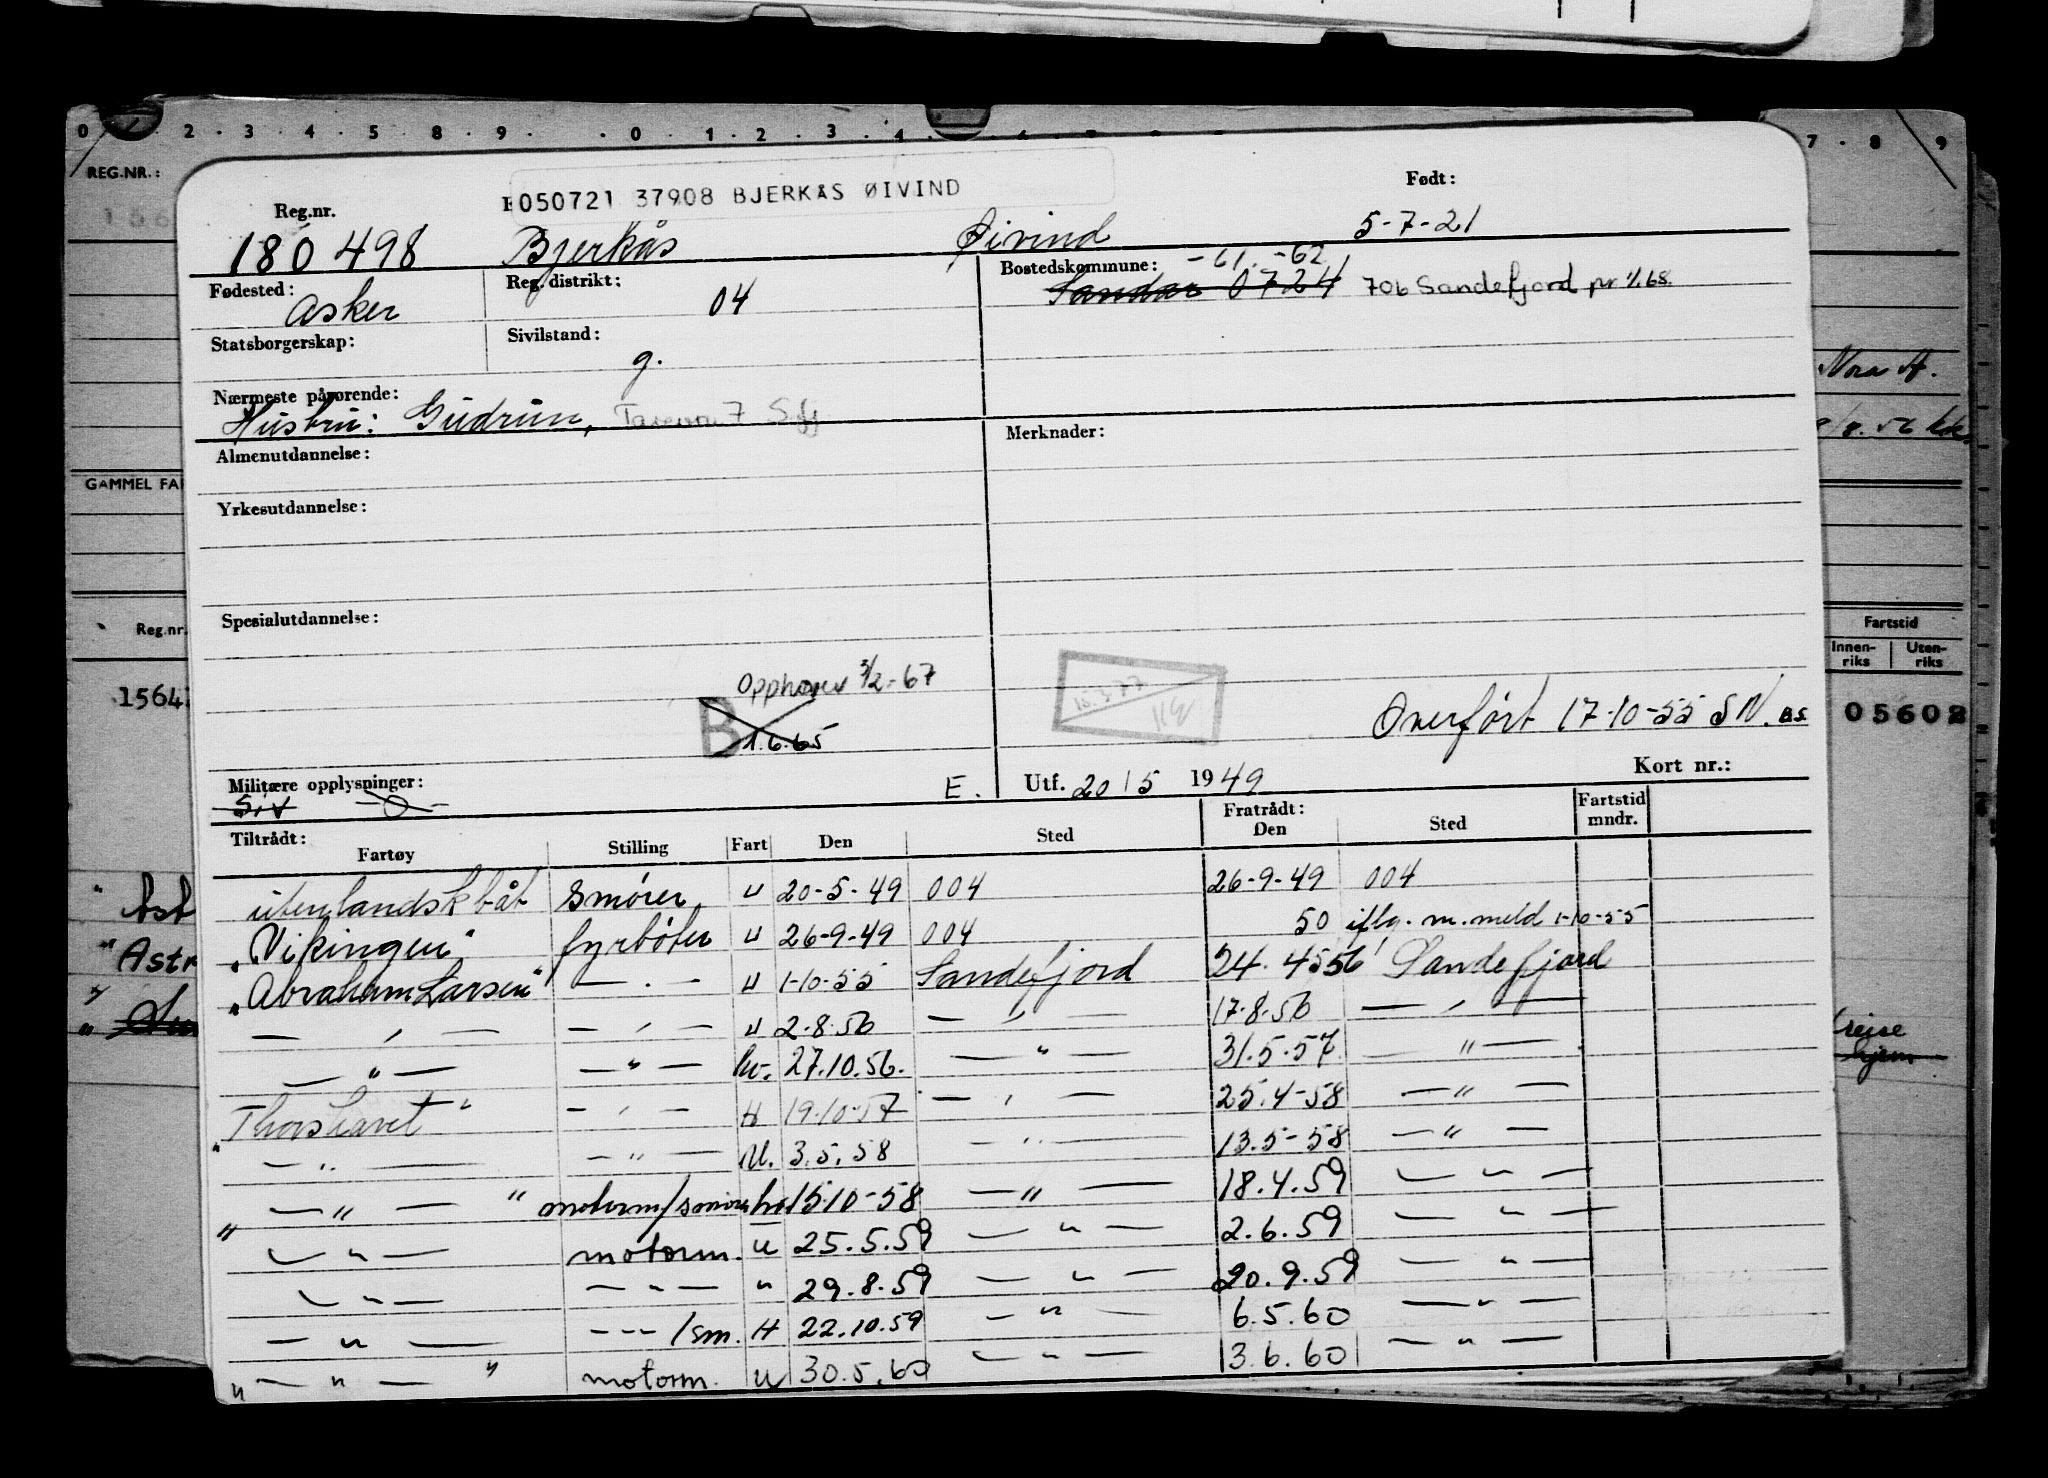 0 2 . 3 . 4 . 5 . 8 . 9 . . 0 . 1 . 2 . 3 . 4 . 7 . 8 9
REG.NR.:
050721 37908 BJERKÅS ØIVIND
Reg.nr.
Født:
180 498 Bjerkås Øivind 5-7-21
Fødested: Asker
Reg. distrikt: 04
Bostedskommune: -61. -62
Sandar 0724 706 Sandefjord pr 1/1.68.
Statsborgerskap:
Sivilstand: g.
Nærmeste pårørende:
Hustru: Gudrun,
Merknader:
Nora A.
Almenutdannelse:
GAMMEL FA
Yrkesutdannelse:
Spesialutdannelse:
Reg.nr.
Fartstid
Innen-riks Uten-riks
Opphører 3/2-67
B 1.6.65
15.3.77
1564
Overført 17-10-55 SN. B.S.
05602
Militære opplysninger:
E. Utf. 20/5 1949
Kort nr.:
Siv -0-
Tiltrådt:
Fartøy Stilling Fart Den Sted
Fratrådt: Den Sted
Fartstid mndr.
utenlandsk båt smører u 20-5-49 004 26-9-49 004
"Vikingen" fyrbøter u 26-9-49 004 50 iflg. m. meld 1-10-55
"Abraham Larsen" — . — H 1-10-55 Sandefjord 24.4 56 Sandefjord
— ' — — ' — u 2.8.56 — ' — 17.8.56 — ' —
— " — — " — hv. 27.10.56. — " — 31.5.57 — " —
"Thorshavet" — ' — H 19.10.57 — ' — 25.4-58 — " —
— " — — " — U. 3.5.58 — " — 13.5-58 — " —
" — " — " motorm/smører hv 15.10-58 — " — 18.4.59 — " —
— " — motorm. u 25.5.59 — " — 2.6.59 — " —
— " — — " — " 29.8.59 — " — 20.9.59 — " —
— " — — - — /sm. H 22.10.59 — " — 6.5.60 — " —
" — " — " motorm. u 30.5.60 — " — 3.6.60 — " —
" Ast
" Astr
reise
hjem